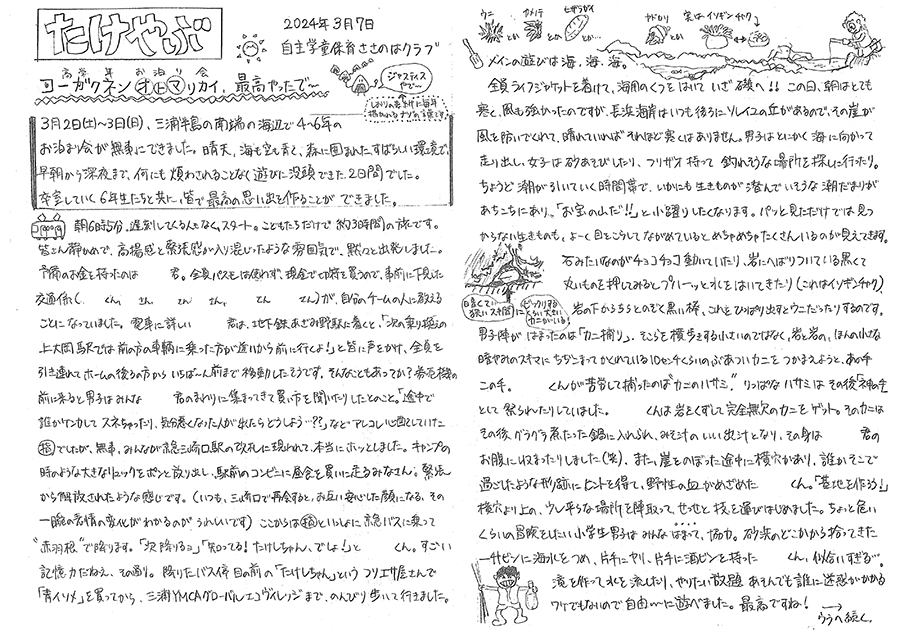 たけやぶ
2024年3月7日
自主学童保育ささのはクラブ
高学年 お泊り会
コーガクネン オトマリカイ, 最高やったで〜
ジャスティスやで〜
3月2日(土)〜3日(日)、三浦半島の南端の海辺で4〜6年の
お泊まり会が無事にできました。晴天、海も空も青く、森に囲まれたすばらしい環境で、
早朝から深夜まで、何にも煩わされることなく遊びに没頭できた、2日間でした。
卒室していく6年生たちと共に、皆で最高の思い出を作ることができました。
朝6時5分、遅刻してくる人もなく、スタート。こどもたちだけで約3時間の旅です。
皆さん静かめで、高揚感と緊張感が入り混じったような雰囲気で、黙々と出発しました。
予備のお金を持ったのは 君。全員パスモは使わず、現金で切符を買うので、事前に下見した
交通係( くん、 さん さん さん、 さん さん)が、自分のチームの人に教える
ことになっていました。電車に詳しい 君は、地下鉄あざみ野駅に着くと、「次の乗り換えの
上大岡駅では前の方の車輌に乗った方が近いから前に行くよ!」と皆に声をかけ、全員を
引き連れてホームの後ろの方からいちば〜ん前まで移動したそうです。そんなこともあってか?券売機の
前に来ると男子はみんな 君のまわりに集まってきて買い方を聞いたりしたとのこと。「途中で
誰かケンカしてスネちゃったり、気分悪くなった人が出たらどうしよう…??」などアレコレ心配していた
指でしたが、無事、みんなが京急三崎口駅の改札に現われて、本当にホッとしました。キャンプの
時のような大きなリュックをポンと放り出し、駅前のコンビニに昼食を買いに走るみなさん。緊張
から解放されたような感じです。(いつも、三崎口で再会すると、お互い安心した顔になる、その
一瞬の表情の変化がわかるのがうれしいです)ここからは指といっしょに京急バスに乗って
“赤羽根”で降ります。「次降りるョ」「知ってる!たけしちゃん、でしょ!」と くん。すごい
記憶力だねえ、その通り。降りたバス停目の前の「たけしちゃん」というツリエサ屋さんで
「青イソメ」を買ってから、三浦YMCAグローバルエコヴィレッジまで、のんびり歩いて行きました。
ウニ とか カメノテ とか ヒザラガイ とか…
ヤドカリ 実はイソギンチャク
メインの遊びは海、海、海。
全員ライフジャケットを着けて、海用のくつをはいていざ磯へ!!この日、朝はとても
寒く、風も強かったのですが、長浜海岸はいつも後ろにソレイユの丘があるので、その崖が
風を防いでくれて、晴れていればそれほど寒くはありません。男子はとにかく海に向かって
走り出し、女子は砂あそびしたり、ツリザオ持って釣れそうな場所を探しに行ったり。
ちょうど潮が引いていく時間帯で、いかにも生きものが潜んでいそうな潮だまりが
あちこちにあり。「お宝の山だ!!」と小躍りしたくなります。パッと見ただけでは見つ
からない生きものも、よーく目をこらしてながめているとめちゃめちゃたくさんいるのが見えてきます。
石みたいなのがチョコチョコ動いていたり、岩にへばりついている黒くて
丸いものを押してみるとプクーッと水をはいてきたり(これはイソギンチャク)
岩の下からちらとのぞく黒い棒、これをひっぱり出すとウニだったりするのです。
男子陣がはまったのは「カニ捕り」。そこらを横歩きする小さいのではなく、岩と岩の、ほんの小さな
暗やみのスキマにちぢこまってかくれている10センチくらいのぶあついカニをつかまえようと、あの手
この手。 くんが苦労して捕ったのは“カニのハサミ”。りっぱなハサミはその後「神の手」
として祭られたりしてしました。 くんは岩をくずして完全無欠のカニをゲット。そのカニは
その後、グラグラ煮たった鍋に入れられ、みそ汁のいい出汁となり、その身は 君の
お腹に収まったりしました(笑)。また、崖をのぼった途中に横穴があり、誰かそこで
過ごしたような形跡にヒントを得て、野性の血がめざめた くん。「基地を作ろう!」
横穴より上の、ウレ平らな場所を陣取って、せっせと枝を運びはじめました。ちょっと危い
くらいの冒険をしたい小学生男子はみんなはまって、協力。砂浜のどこかから拾ってきた
一升ビンに海水をつめ、片手にヤリ、片手に酒ビンを持った くん、似合いすぎる…
滝を作って水を流したり、やりたい放題あそんでも誰に迷惑がかかる
ワケでもないので自由〜に遊べました。最高ですね!
→ウラへ続く。